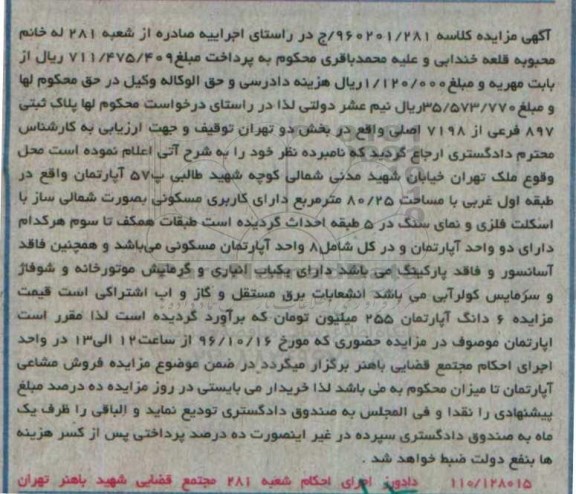 آگهی مزایده کلاسه ۹۶۰۲۰۱/۲۸۱/ج در راستای اجراییه صادره از شعبه ۲۸۱ له خانم
محبوبه قلعه خندابی و علیه محمدباقری محکوم به پرداخت مبلغ۷۱۱/۴۷۵/۴۰۹ ریال از
بابت مهریه و مبلغ۱/۱۲۰/۰۰۰ریال هزینه دادرسی و حق الوکاله وکیل در حق محکوم لها
و مبلغ۳۵/۵۷۳/۷۷۰ریال نیم عشر دولتی لذا در راستای درخواست محکوم لها پلاک ثبتی
۸۹۷ فرعی از ۷۱۹۸ اصلی واقع در بخش دو تهران توقیف و جهت ارزیابی به کارشناس
محترم دادگستری ارجاع گردید که نامبرده نظر خود را به شرح آتی اعلام نموده است محل
وقوع ملک تهران خیابان شهید مدنی شمالی کوچه شهید طالبی پ۵۷ آپارتمان واقع در
طبقه اول غربی با مساحت ۸۰/۲۵ مترمربع دارای کاربری مسکونی بصورت شمالی ساز با
اسکلت فلزی و نمای سنگ در ۵ طبقه احداث گردیده است طبقات همکف تا سوم هرکدام
دارای دو واحد آپارتمان و در کل شامل۸ واحد آپارتمان مسکونی می‌باشد و همچنین فاقد
آسانسور و فاقد پارکینگ می باشد دارای یکباب انباری و گرمایش موتورخانه و شوفاژ
و سرمایس کولرآبی می باشد انشعابات برق مستقل و گاز و اب اشتراکی است قیمت
مزایده ۶ دانگ آپارتمان ۲۵۵ میلیون تومان که برآورد گردیده است لذا مقرر است
اپارتمان موصوف در مزایده حضوری که مورخ ۹۶/۱۰/۱۶ از ساعت۱۲ الی۱۳ در واحد
اجرای احکام مجتمع قضایی باهنر برگزار میگردد در ضمن موضوع مزایده فروش مشاعی
آپارتمان تا میزان محکوم به می باشد لذا خریدار می بایستی در روز مزایده ده درصد مبلغ
پیشنهادی را نقدا و فی المجلس به صندوق دادگستری تودیع نماید و الباقی را ظرف یک
ماه به صندوق دادگستری سپرده در غیر اینصورت ده درصد پرداختی پس از کسر هزینه
ها بنفع دولت ضبط خواهد شد .
۱۱۰/۱۲۸۰۱۵ دادورز اجرای احکام شعبه ۲۸۱ مجتمع قضایی شهید باهنر تهران